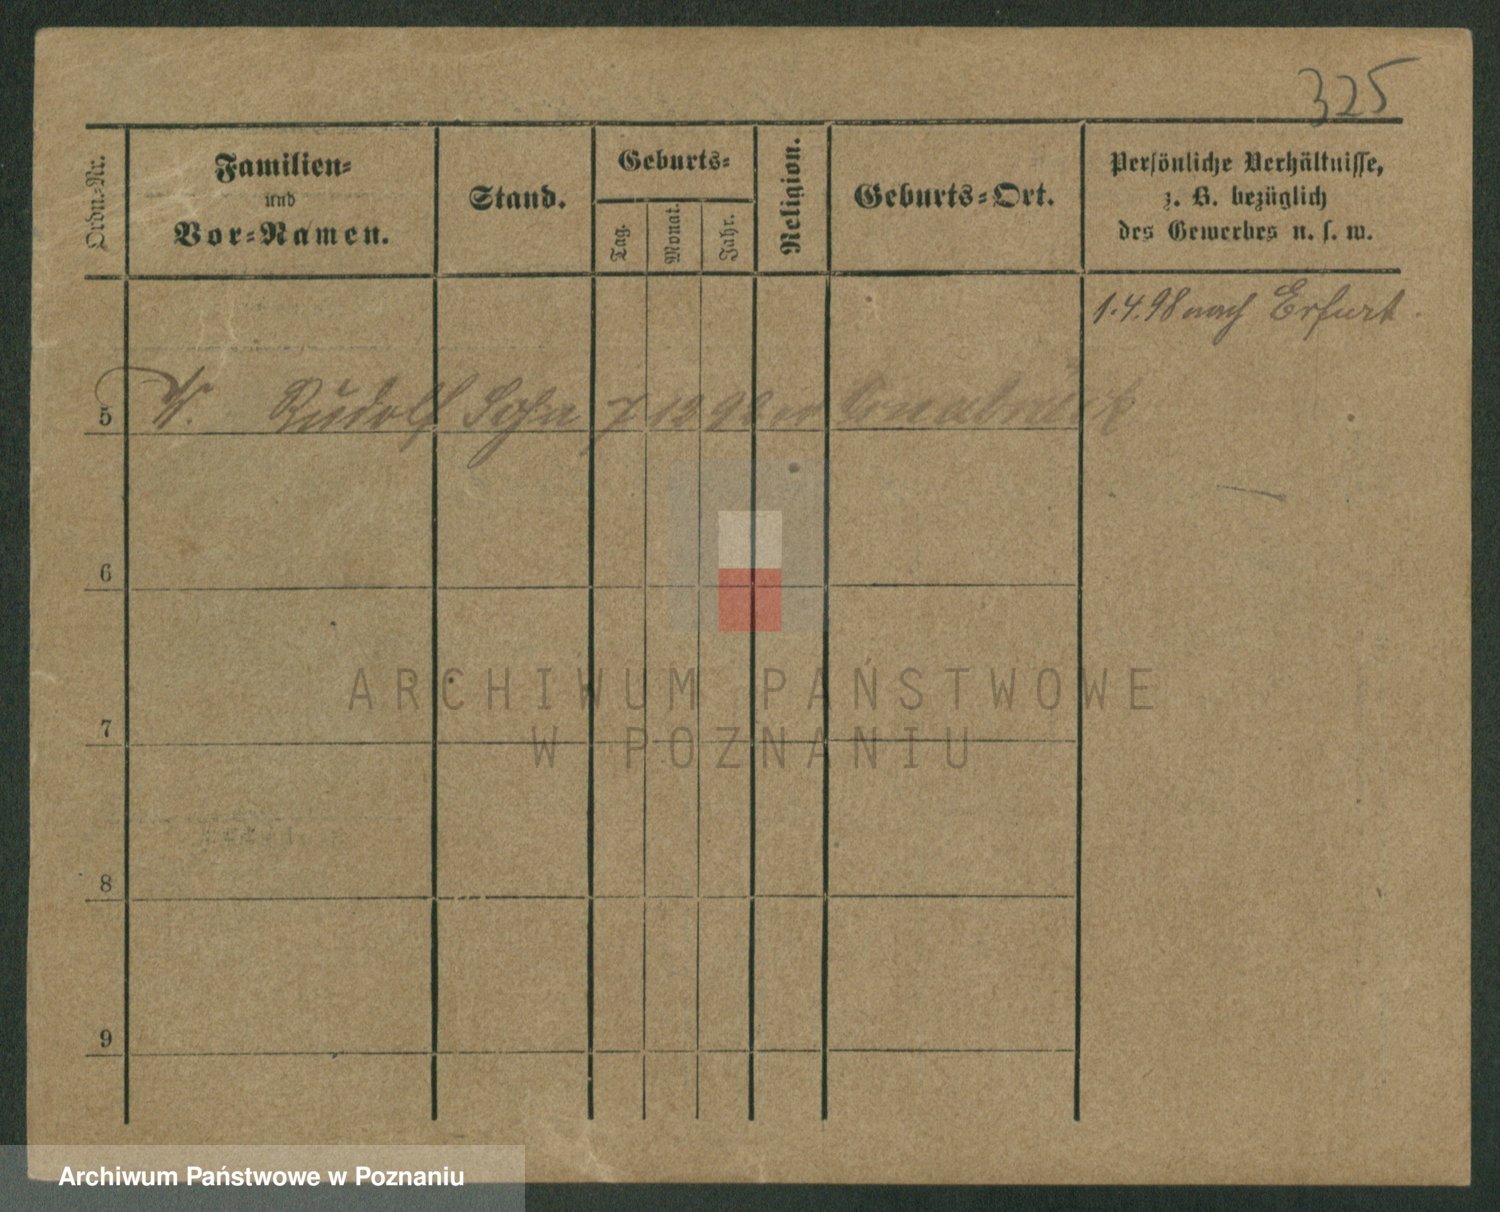 325
Ordn.-Nr.
Familien-
und
Vor-Namen.
Stand.
Geburts-
Tag.
Monat.
Jahr.
Religion.
Geburts-Ort.
Persönliche Verhältnisse,
z. B. bezüglich
des Gewerbes u. s. w.
1.4.98 nach Erfurt.
5 Rudolf Sohn 7 12 ev Osnabrück
6
7
8
9
ARCHIWUM PAŃSTWOWE
W POZNANIU
Archiwum Państwowe w Poznaniu